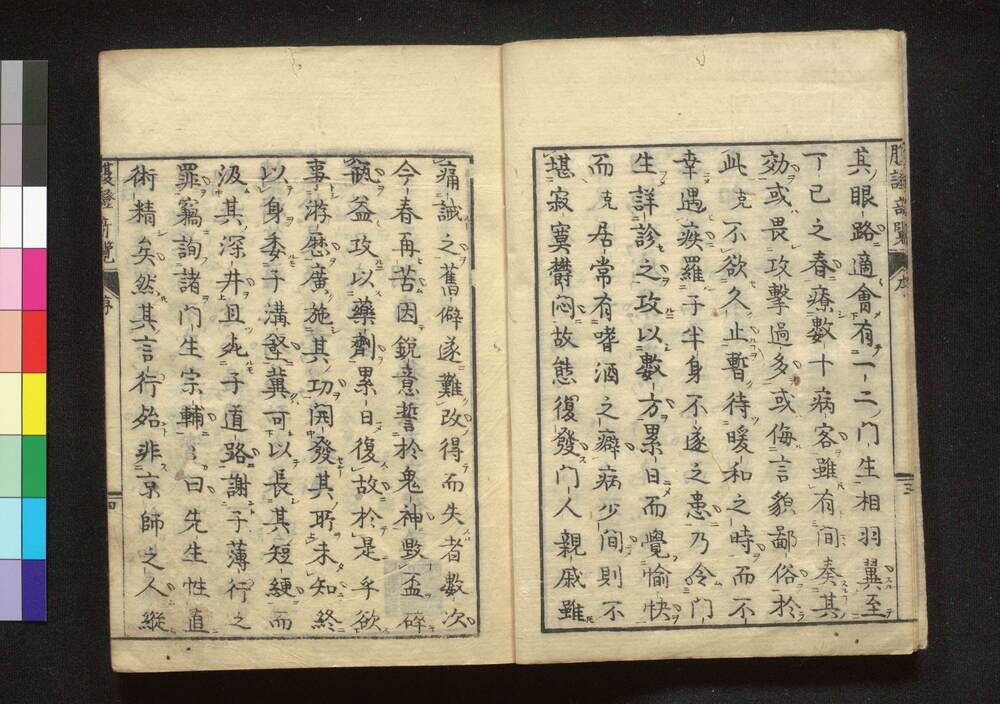 其眼路適會有一二門生相羽翼至
丁巳之春療數十病客雖有間奏其
効或畏攻擊過多或侮言貌鄙俗於
此克不欲久止暫待暖和之時而不
幸遇疾羅于半身不遂之患乃令門
生詳診之攻以數方累日而覺愉快
而克居常有嗜酒之癖病少間則不
堪寂寞欝悶故態復發門人親戚雖
痛誡之舊僻遂難改得而失者數次
今春再苦因銳意誓於鬼神毀盃碎
瓶益攻以藥劑累日復故於是乎欲
事游歷廣施其功開發其所未知終
以身委于溝壑冀可以長其短綆而
汲其深井且死于道路謝子薄行之
罪竊詢諸門生宗輔々曰先生性直
術精矣然其言行始非京師之人縱
三
四
序